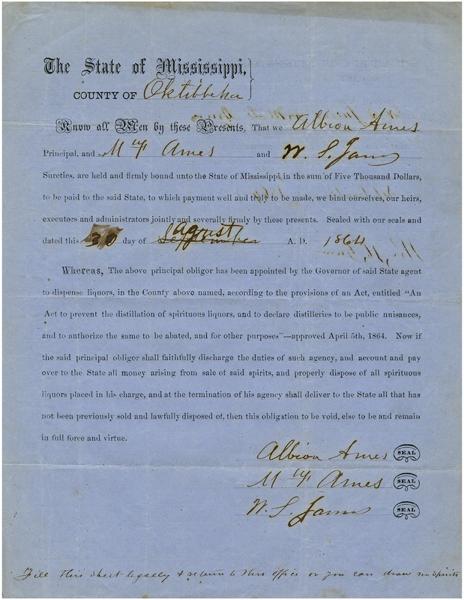 The State of Mississippi,
COUNTY OF Oktibbeha
Know all Men by these Presents, That we Albion Ames
Principal, and M Ames and W. S. James
Sureties, are held and firmly bound unto the State of Mississippi, in the sum of Five Thousand Dollars,
to be paid to the said State, to which payment well and truly to be made, we bind ourselves, our heirs,
executors and administrators jointly and severally firmly by these presents. Sealed with our seals and
dated this 30 day of September August A. D. 1864
Whereas, The above principal obligor has been appointed by the Governor of said State agent
to dispense liquors, in the County above named, according to the provisions of an Act, entitled "An
Act to prevent the distillation of spirituous liquors, and to declare distilleries to be public nuisances,
and to authorize the same to be abated, and for other purposes"—approved April 5th, 1864. Now if
the said principal obligor shall faithfully discharge the duties of such agency, and account and pay
over to the State all money arising from sale of said spirits, and properly dispose of all spirituous
liquors placed in his charge, and at the termination of his agency shall deliver to the State all that
has not been previously sold and lawfully disposed of, then this obligation to be void, else to be and remain
in full force and virtue.
Albion Ames SEAL
M Ames SEAL
W. S. James SEAL
Fill this sheet legally & return to this office or you can draw no spirits